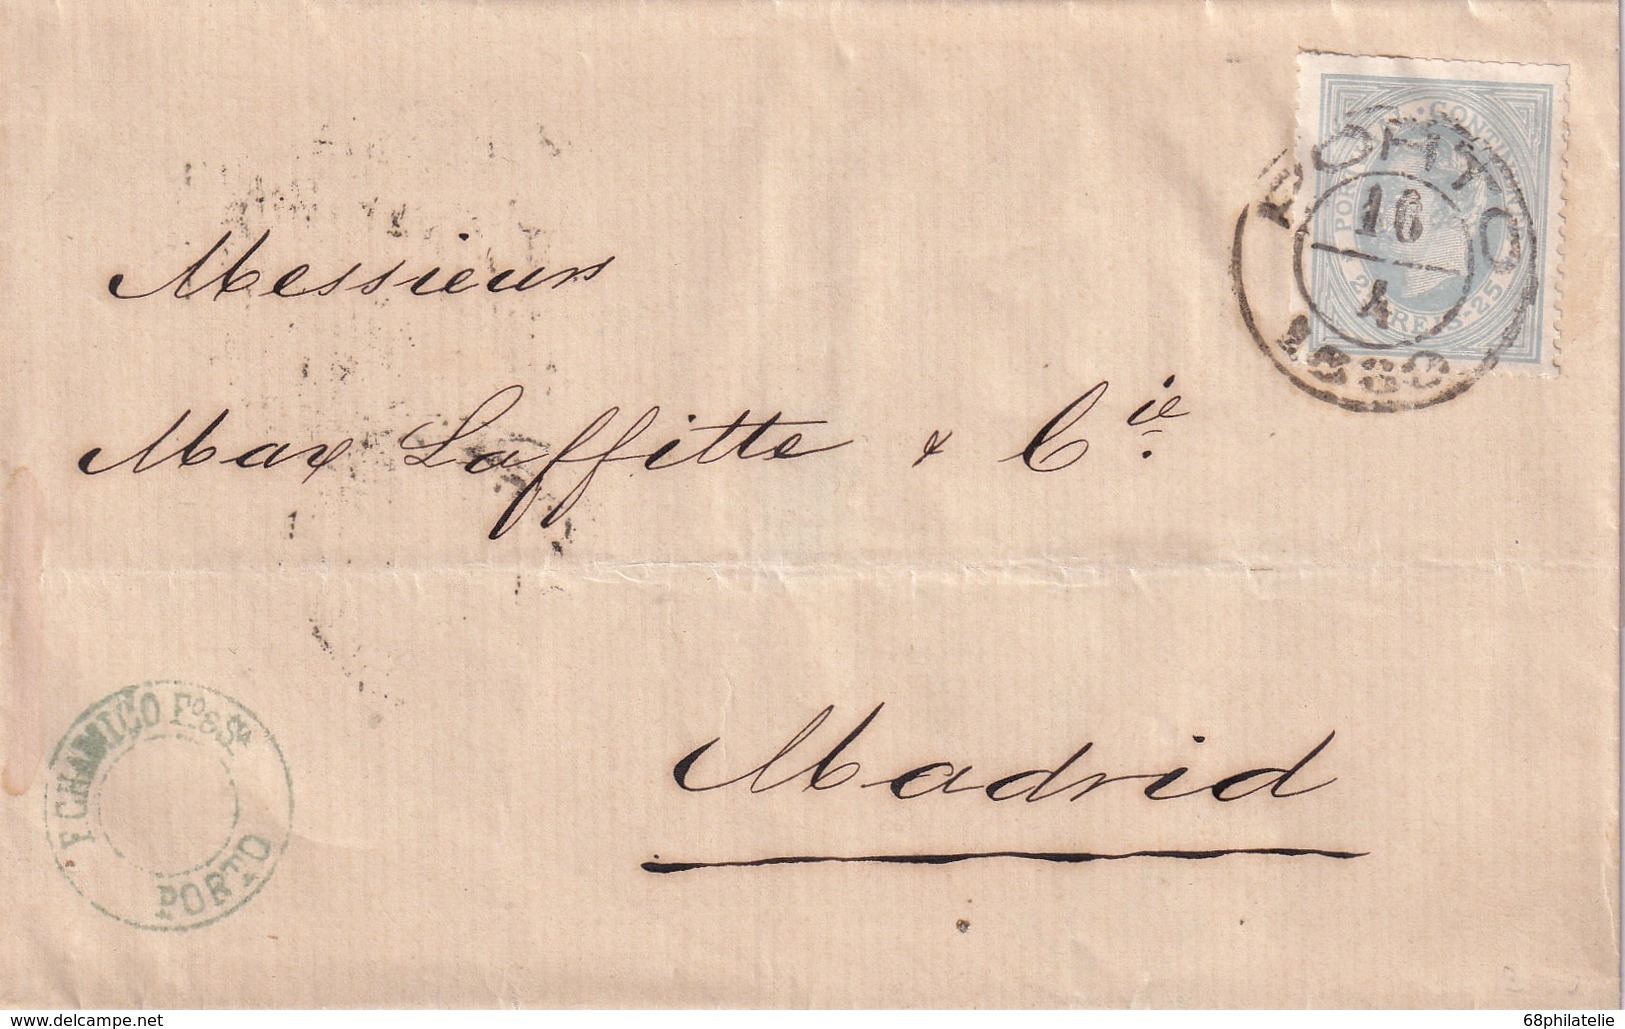 PORTUGAL · CONTINENTE
25 REIS · 25
PORTO
16
4
1880
Messieurs
Max Laffitte & Cie.
Madrid
F. CHAMICO Fo & Sa
PORTO
68philatelie
delcampe.net